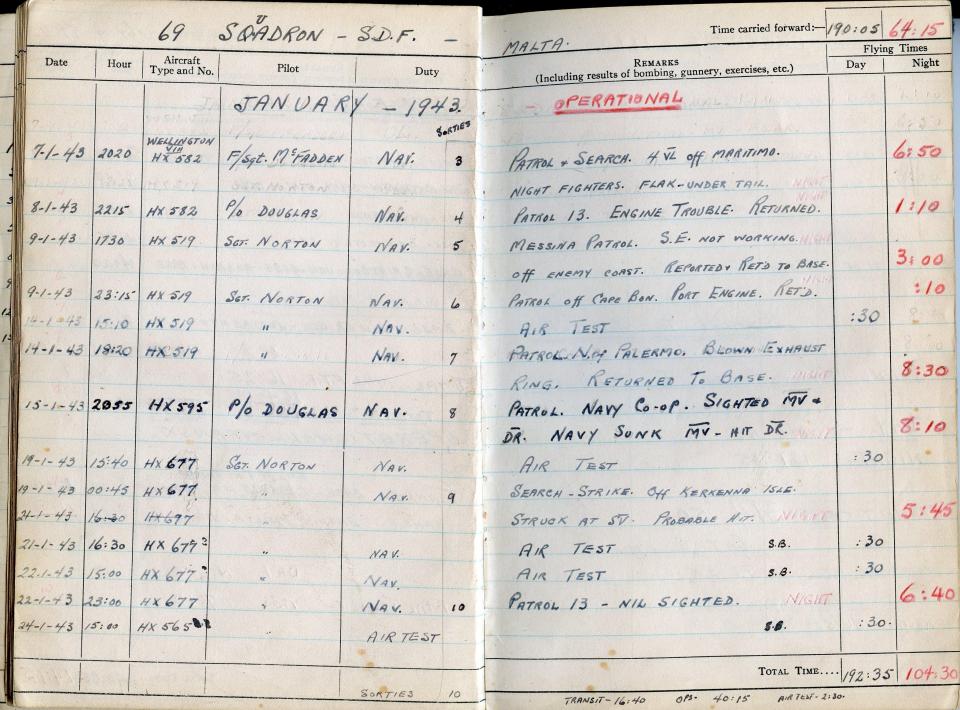 69 SQUADRON - S.D.F. - MALTA.
Time carried forward:— 190:05 64:15
Date Hour Aircraft Type and No. Pilot Duty REMARKS (Including results of bombing, gunnery, exercises, etc.) Flying Times Day Night
JANUARY - 1943. - OPERATIONAL
SORTIES
WELLINGTON VIII
7-1-43 2020 HX 582 F/Sgt. McFADDEN NAV. 3 PATROL & SEARCH. 4 VL off MARITIMO. 6:50
NIGHT FIGHTERS. FLAK-UNDER TAIL. NIGHT
8-1-43 2215 HX 582 P/O DOUGLAS NAV. 4 PATROL 13. ENGINE TROUBLE. RETURNED. NIGHT 1:10
9-1-43 1730 HX 519 SGT. NORTON NAV. 5 MESSINA PATROL. S.E. NOT WORKING. NIGHT
off ENEMY COAST. REPORTED & RET'D TO BASE. 3:00
9-1-43 23:15 HX 519 SGT. NORTON NAV. 6 PATROL off CAPE BON. PORT ENGINE. RET'D. NIGHT :10
14-1-43 15:10 HX 519 " NAV. AIR TEST :30
14-1-43 18:20 HX 519 " NAV. 7 PATROL N. of PALERMO. BLOWN EXHAUST
RING. RETURNED TO BASE. NIGHT 8:30
15-1-43 2055 HX 595 P/O DOUGLAS NAV. 8 PATROL. NAVY CO-OP. SIGHTED MV &
DR. NAVY SUNK MV - HIT DR. NIGHT 8:10
19-1-43 15:40 HX 677 SGT. NORTON NAV. AIR TEST :30
19-1-43 00:45 HX 677 " NAV. 9 SEARCH-STRIKE. Off KERKENNA ISLE.
21-1-43 16:30 HX 697 " STRUCK AT SV. PROBABLE HIT. NIGHT 5:45
21-1-43 16:30 HX 677 " NAV. AIR TEST S.B. :30
22-1-43 15:00 HX 677 " NAV. AIR TEST S.B. :30
22-1-43 23:00 HX 677 " NAV. 10 PATROL 13 - NIL SIGHTED. NIGHT 6:40
24-1-43 15:00 HX 565 AIR TEST S.B. :30.
TOTAL TIME.... 192:35 104:30
SORTIES 10 TRANSIT-16:40 OPS- 40:15 AIR TEST-2:30.